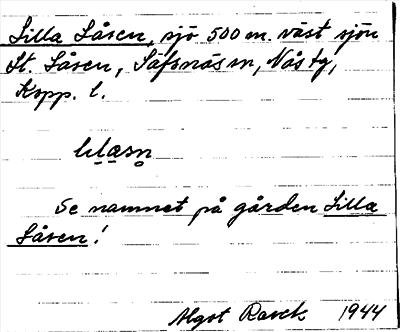 Lilla Låsen, sjö 500 m. väst sjön
St. Låsen, Säfsnäs sn, Nås tg,
Kopp. l.
Se namnet på gården Lilla
Låsen!
1944